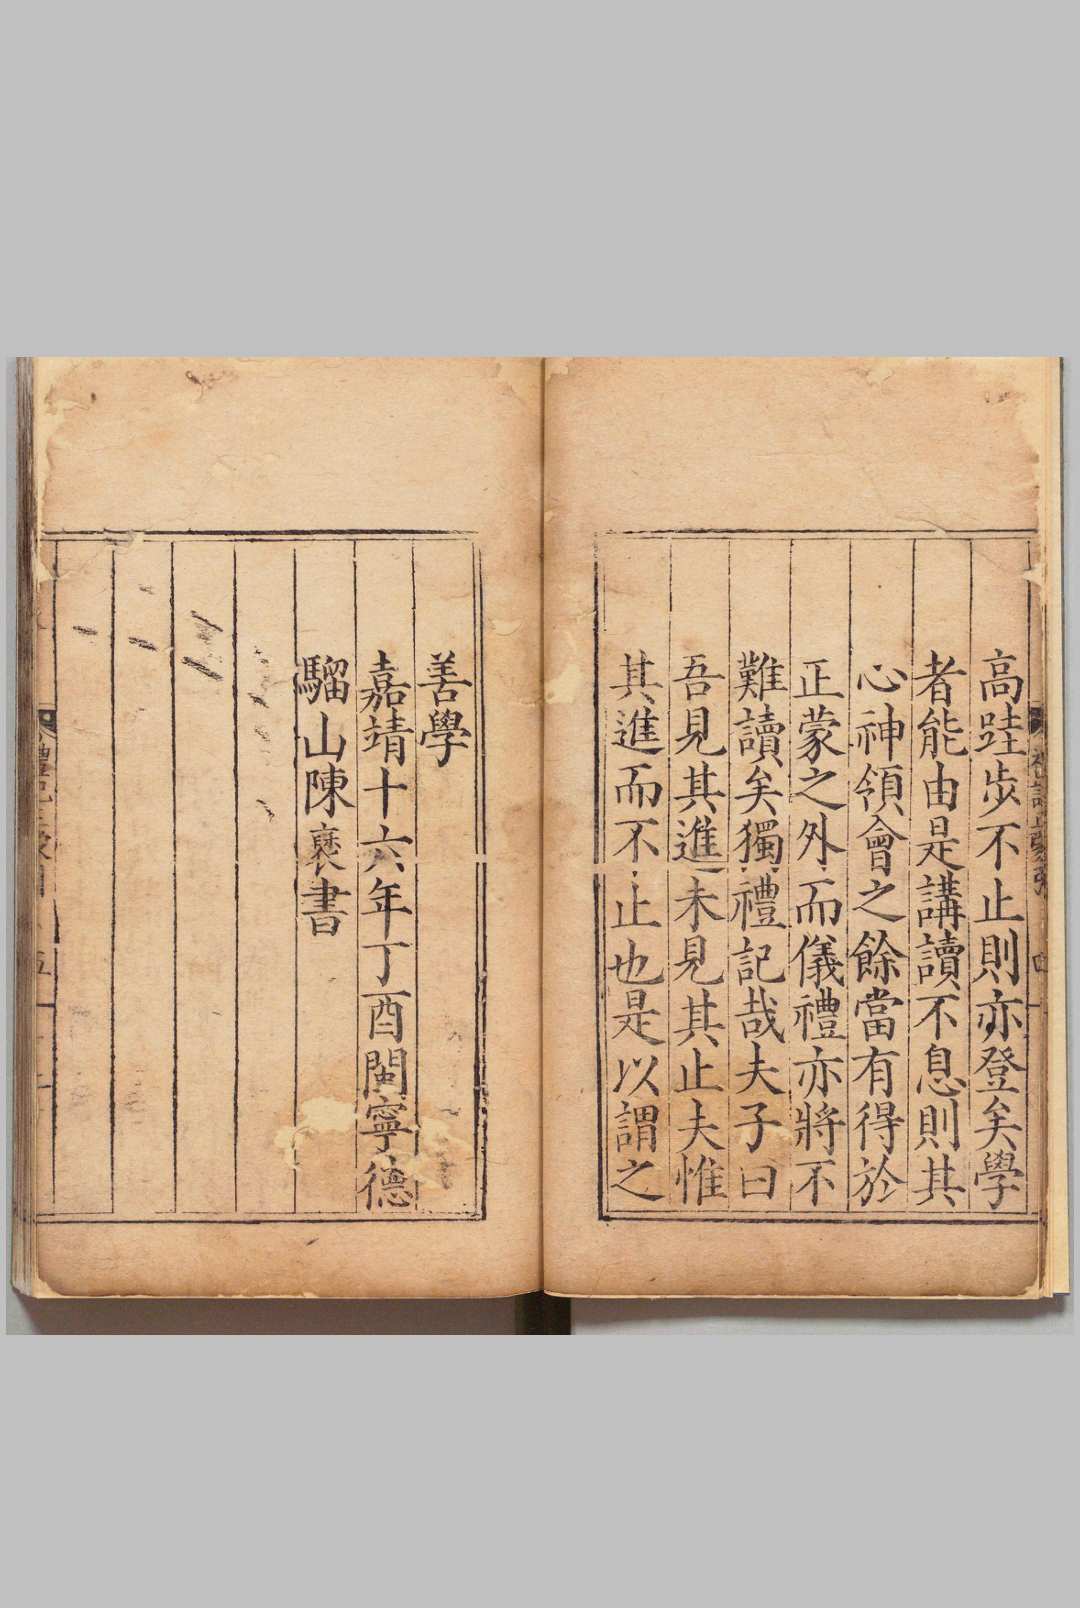 高跬步不止則亦登矣學
者能由是講讀不息則其
心神領會之餘當有得於
正蒙之外而儀禮亦將不
難讀矣獨禮記哉夫子曰
吾見其進未見其止夫惟
其進而不止也是以謂之
善學
嘉靖十六年丁酉閩寧德
騮山陳褎書